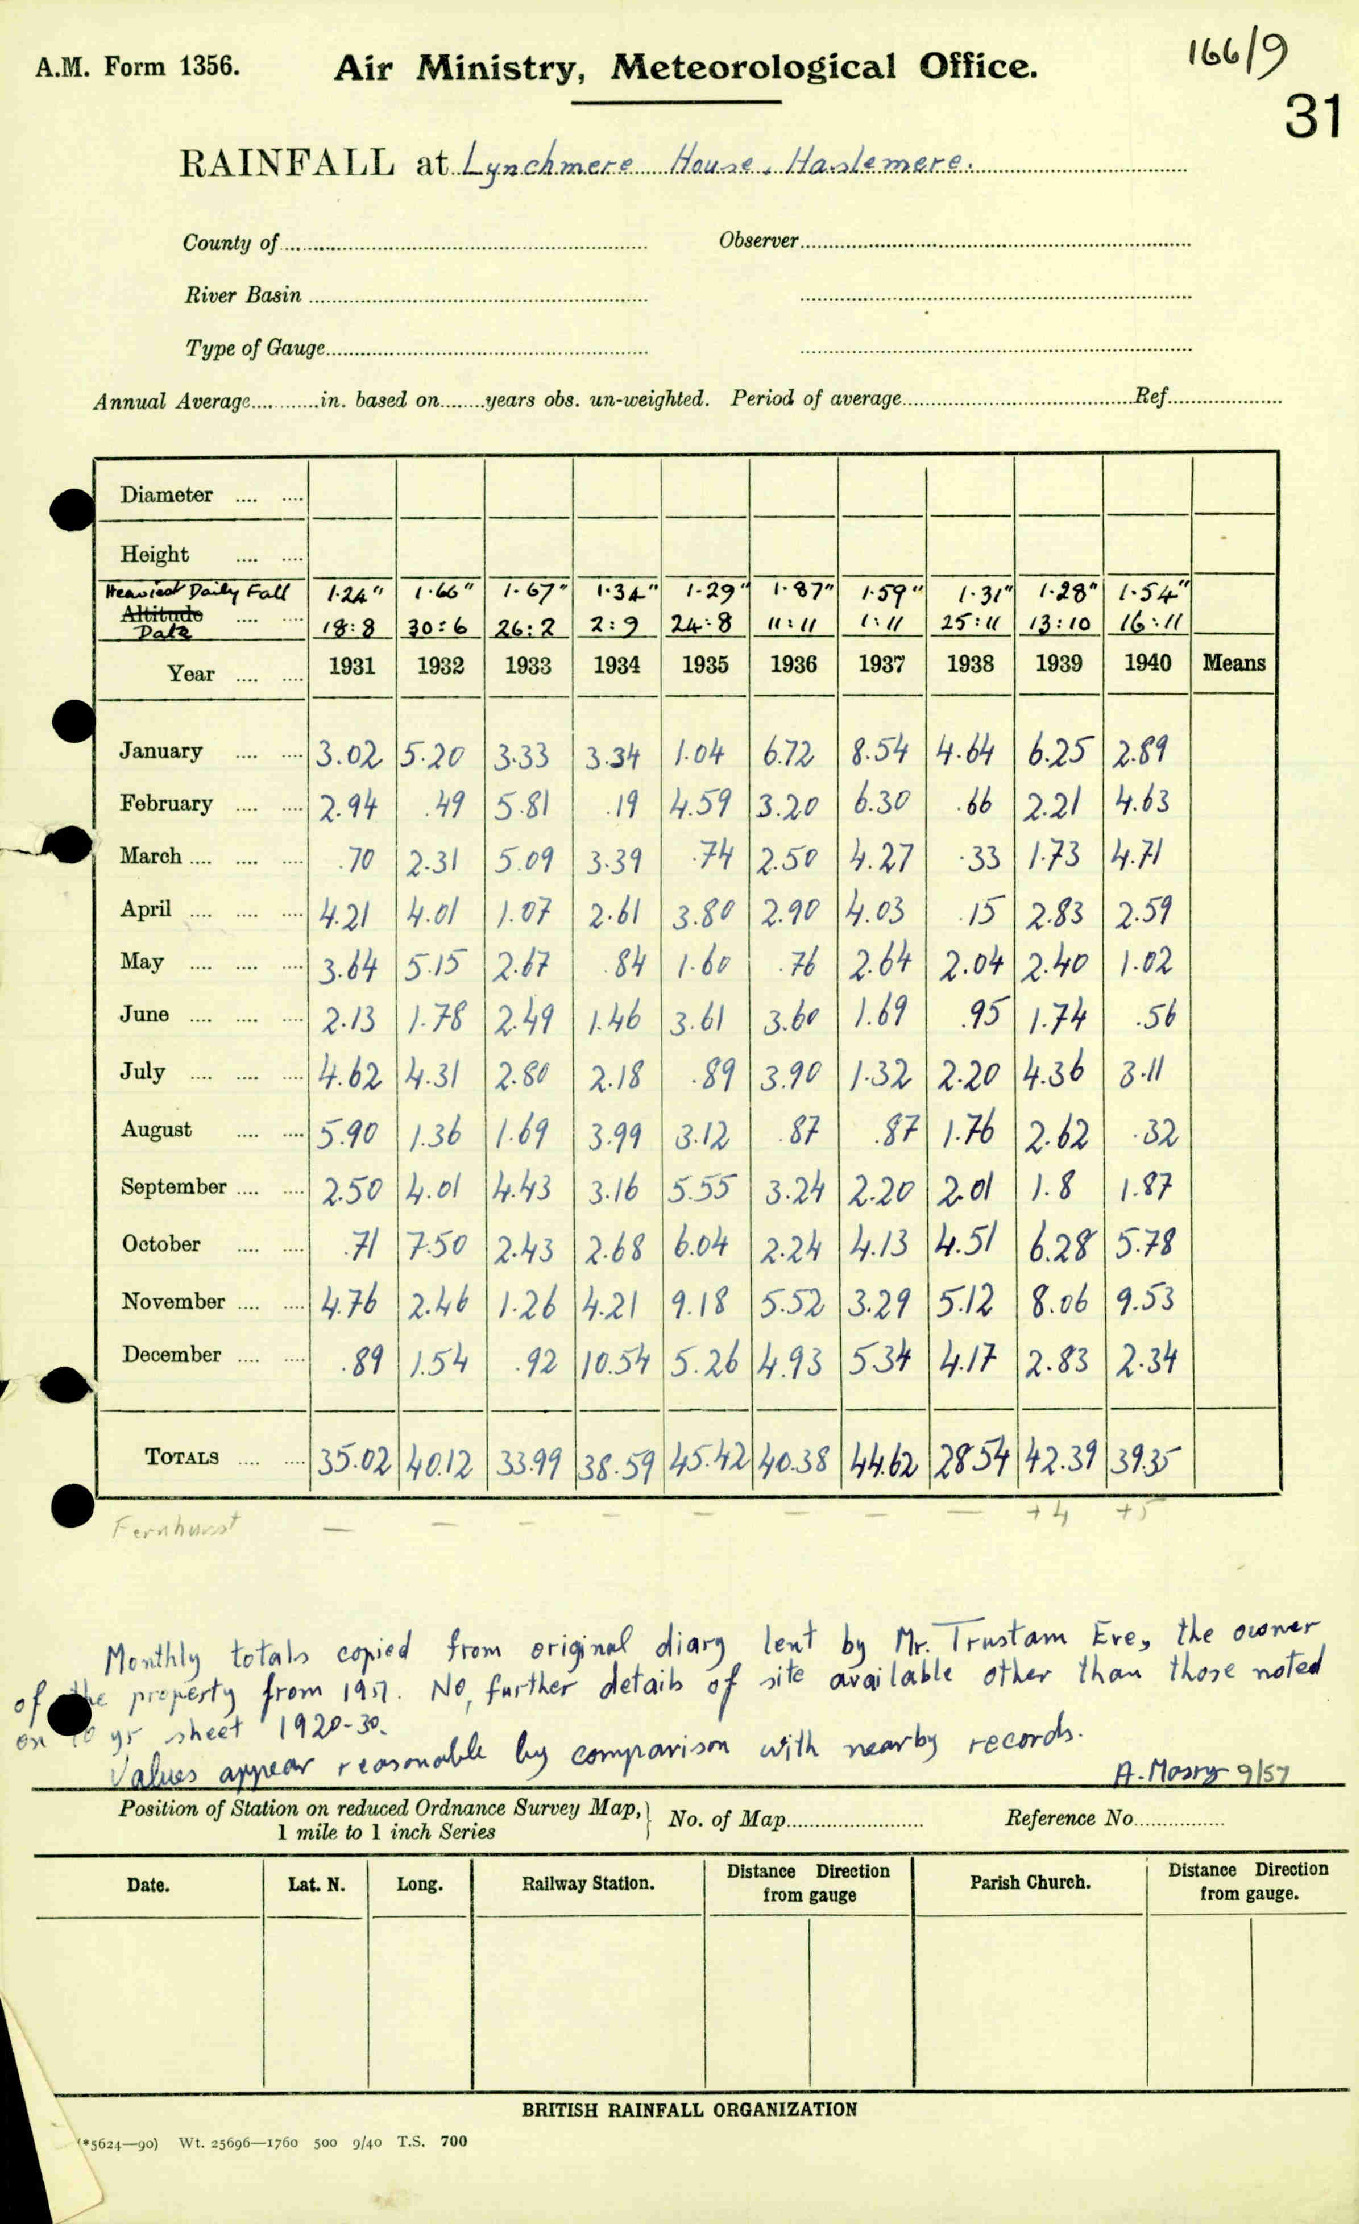 A.M. Form 1356.
Air Ministry, Meteorological Office.
166/9
31
RAINFALL at Lynchmere House, Haslemere.
County of
Observer
River Basin
Type of Gauge
Annual Average in. based on years obs. un-weighted. Period of average Ref
Diameter
Height
Heaviest Daily Fall 1.24" 1.66" 1.67" 1.34" 1.29" 1.87" 1.59" 1.31" 1.28" 1.54"
Altitude
Date 18:8 30:6 26:2 2:9 24:8 11:11 1:11 25:11 13:10 16:11
Year 1931 1932 1933 1934 1935 1936 1937 1938 1939 1940 Means
January 3.02 5.20 3.33 3.34 1.04 6.72 8.54 4.64 6.25 2.89
February 2.94 .49 5.81 .19 4.59 3.20 6.30 .66 2.21 4.63
March .70 2.31 5.09 3.39 .74 2.50 4.27 .33 1.73 4.71
April 4.21 4.01 1.07 2.61 3.80 2.90 4.03 .15 2.83 2.59
May 3.64 5.15 2.67 .84 1.60 .76 2.64 2.04 2.40 1.02
June 2.13 1.78 2.49 1.46 3.61 3.60 1.69 .95 1.74 .56
July 4.62 4.31 2.80 2.18 .89 3.90 1.32 2.20 4.36 3.11
August 5.90 1.36 1.69 3.99 3.12 .87 .87 1.76 2.62 .32
September 2.50 4.01 4.43 3.16 5.55 3.24 2.20 2.01 1.8 1.87
October .71 7.50 2.43 2.68 6.04 2.24 4.13 4.51 6.28 5.78
November 4.76 2.46 1.26 4.21 9.18 5.52 3.29 5.12 8.06 9.53
December .89 1.54 .92 10.54 5.26 4.93 5.34 4.17 2.83 2.34
TOTALS 35.02 40.12 33.99 38.59 45.42 40.38 44.62 28.54 42.39 39.35
Fernhurst — — — — — — — — +4 +5
Monthly totals copied from original diary lent by Mr. Trustam Eve, the owner
of the property from 1951. No further details of site available other than those noted
on 10 yr sheet 1920-30.
Values appear reasonable by comparison with nearby records.
A. 9/57
Position of Station on reduced Ordnance Survey Map, 1 mile to 1 inch Series
No. of Map
Reference No.
Date. Lat. N. Long. Railway Station. Distance Direction from gauge Parish Church. Distance Direction from gauge.
BRITISH RAINFALL ORGANIZATION
(*5624—90) Wt. 25696—1760 500 9/40 T.S. 700